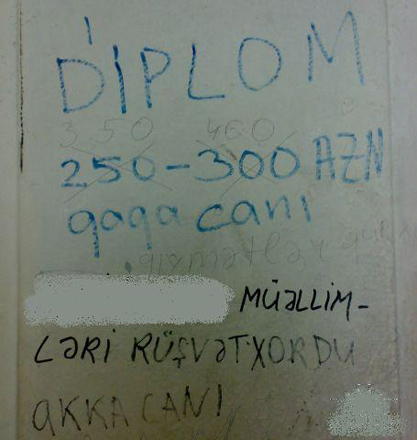 DİPLOM
350 400
250-300 AZN
qaqa canı
qiymətlər
MÜƏLLİM-
LƏRİ RÜŞVƏTXORDU
AKKA CANI